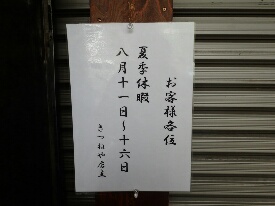 お客様各位
夏季休暇
八月十一日～十六日
きつねや店主